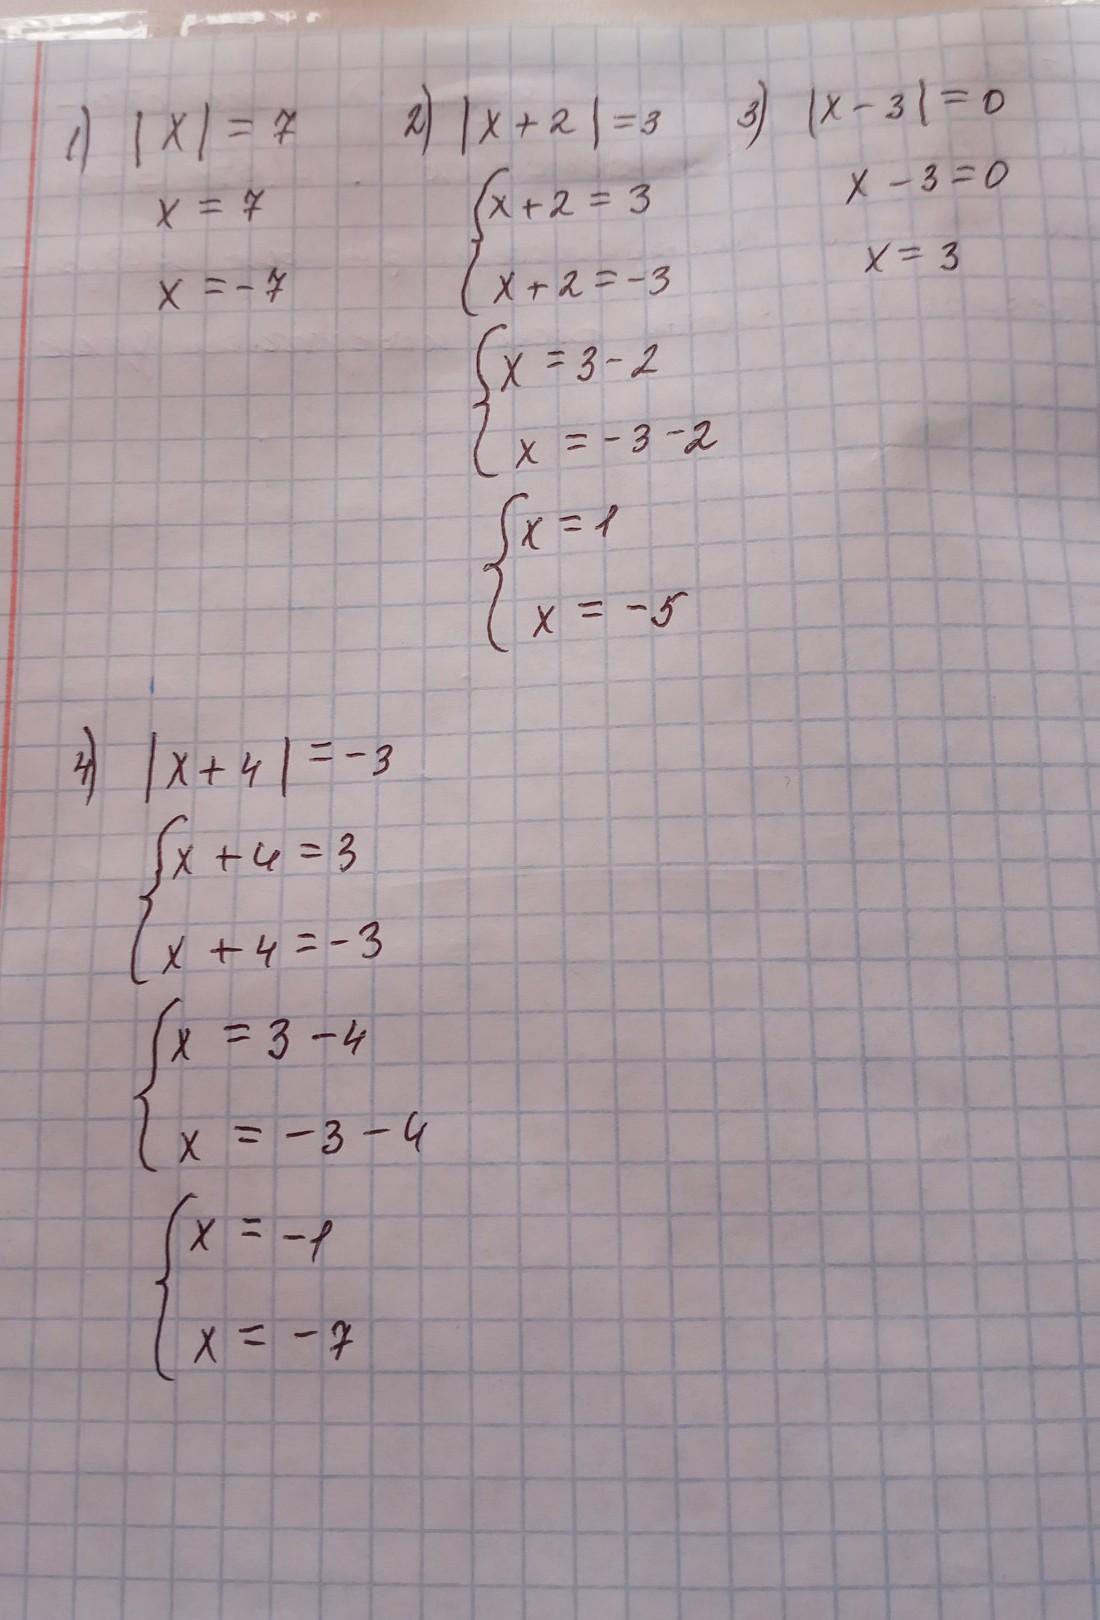 1) |x| = 7
x = 7
x = -7
2) |x + 2| = 3
{x + 2 = 3
x + 2 = -3
{x = 3 - 2
x = -3 - 2
{x = 1
x = -5
3) |x - 3| = 0
x - 3 = 0
x = 3
4) |x + 4| = -3
{x + 4 = 3
x + 4 = -3
{x = 3 - 4
x = -3 - 4
{x = -1
x = -7